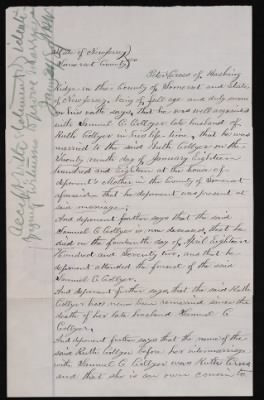 State of New Jersey
Somerset County SS
Peter Cross of Washing
Ridge in the County of Somerset and State
of New Jersey, being of full age and duly sworn
on his oath says, that he was well acquainted
with Samuel C Collyer late husband of
Ruth Collyer in his life time, that he was
married to the said Ruth Collyer on the
Twenty ninth day of January Eighteen
hundred and Eighteen at the house of
deponent's Mother in the County of Somerset
aforesaid that he deponent was present at
said marriage;
And deponent further says that the said
Samuel C Collyer is now deceased, that he
died on the fourteenth day of April Eighteen
Hundred and Seventy two, and that he
deponent attended the funeral of the said
Samuel C Collyer.
And deponent further says, that the said Ruth
Collyer has never been remarried since the
death of her late husband Samuel C
Collyer.
And deponent further says that the name of the
said Ruth Collyer before her intermarriage
with Samuel C Collyer was Ruth Cross
and that she is an own cousin to